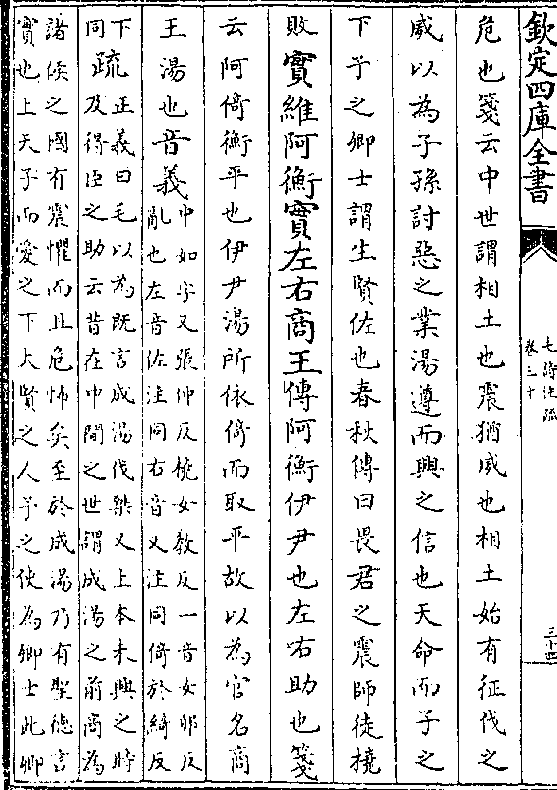 欽定四庫全書
毛詩注疏
卷三十
三十四
危也箋云中世謂相土也震猶威也相土始有征伐之
威以為子孫討惡之業湯遵而興之信也天命而子之
下予之卿士謂生賢佐也春秋傳曰畏君之震師徒橈
敗實維阿衡實左右商王傳阿衡伊尹也左右助也箋
云阿倚衡平也伊尹湯所依倚而取平故以為官名商
王湯也音義中如字又張仲反橈女教反一音女卯反
亂也左音佐注同右音又注同倚於綺反
下正義曰毛以為既言成湯伐桀又上本未興之時
同疏及得臣之助云昔在中間之世謂成湯之前商為
諸侯之國有震懼而且危怖矣至於成湯乃有聖德言
實也上天子而愛之下大賢之人予之使為卿士此卿